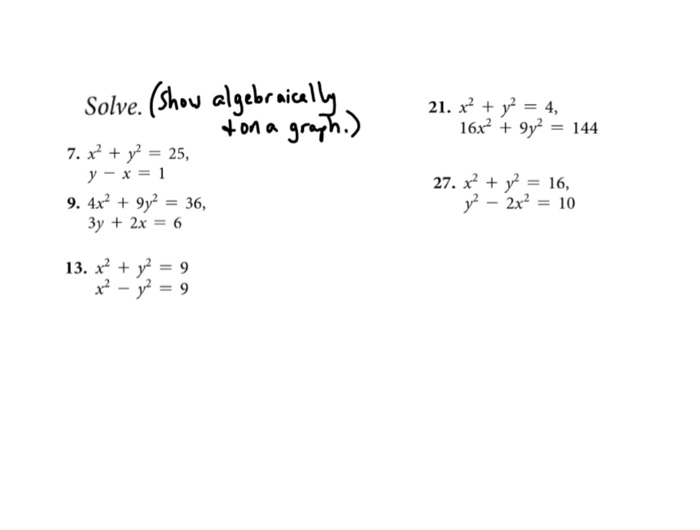 Solve. (Show algebraically
+ on a graph.)
7. x² + y² = 25,
y − x = 1
9. 4x² + 9y² = 36,
3y + 2x = 6
13. x² + y² = 9
x² − y² = 9
21. x² + y² = 4,
16x² + 9y² = 144
27. x² + y² = 16,
y² − 2x² = 10